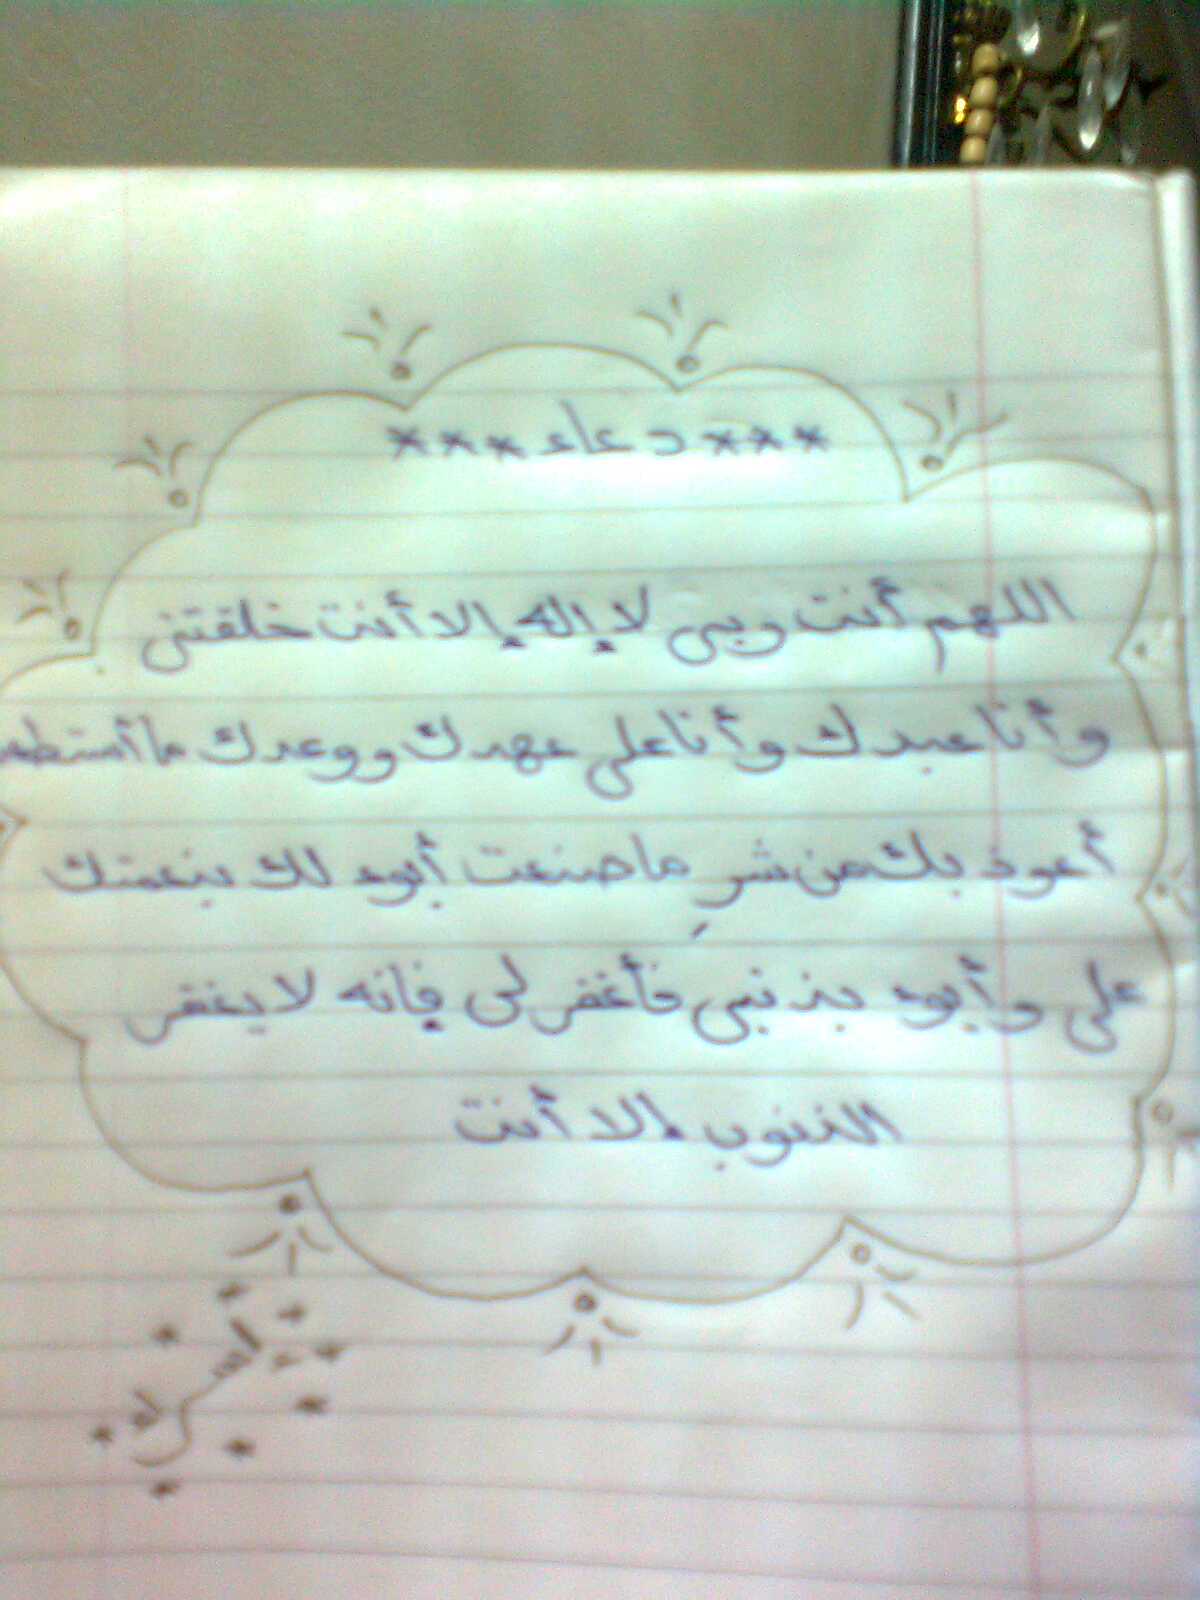 *** دعاء ***
اللهم أنت ربى لا إله إلا أنت خلقتنى
وأنا عبدك وأنا على عهدك ووعدك ما أستطعـ
أعوذ بك من شر ما صنعت أبوء لك بنعمتك
على وأبوء بذنبى فأغفر لى فإنه لا يغفر
الذنوب إلا أنت